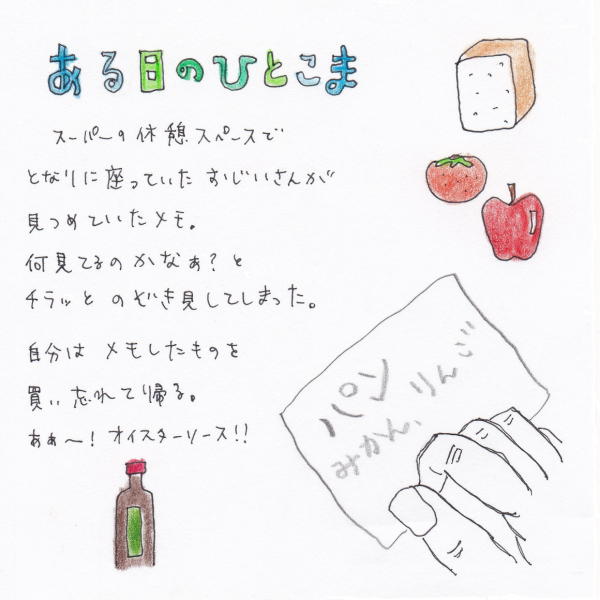 ある日のひとこま
スーパーの休憩スペースで
となりに座っていたおじいさんが
見つめていたメモ。
何見てるのかなぁ?と
チラッとのぞき見してしまった。
自分はメモしたものを
買い忘れて帰る。
あぁ〜!オイスターソース!!
パン
みかん、りんご